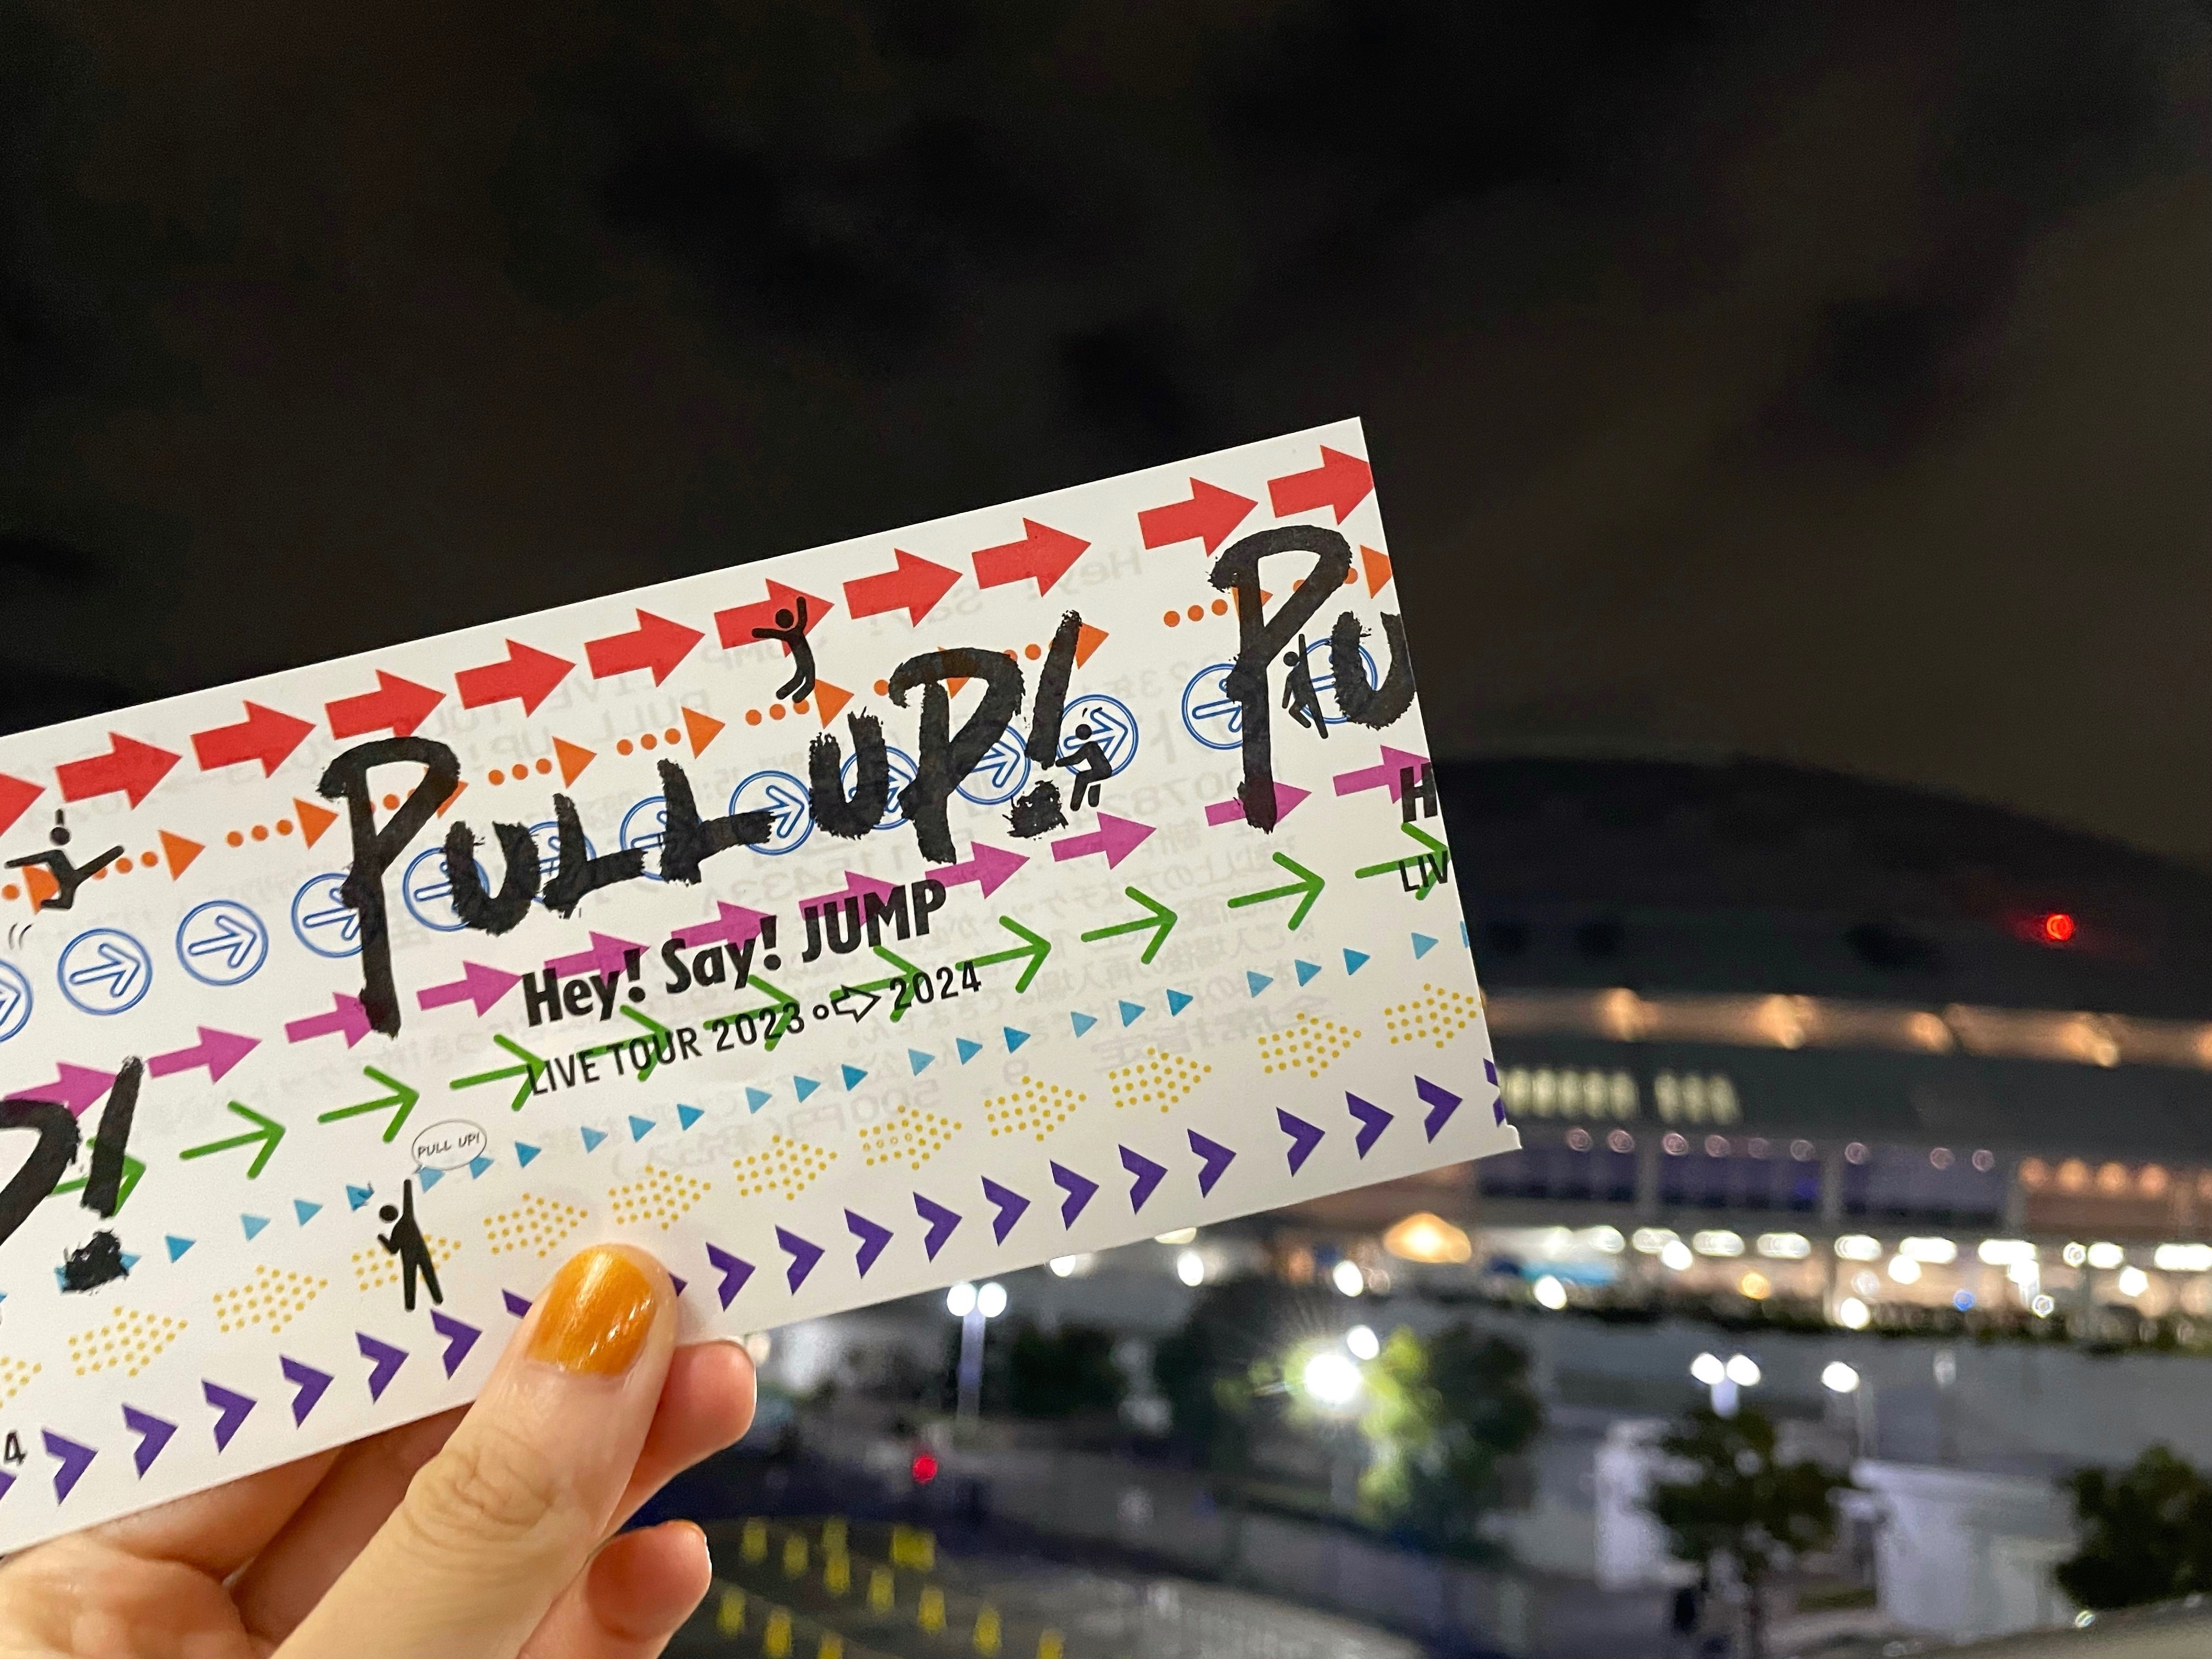 PULL UP!
Hey! Say! JUMP
LIVE TOUR 2023⇨2024
PULL UP!
PU
H
LIV
P!
4